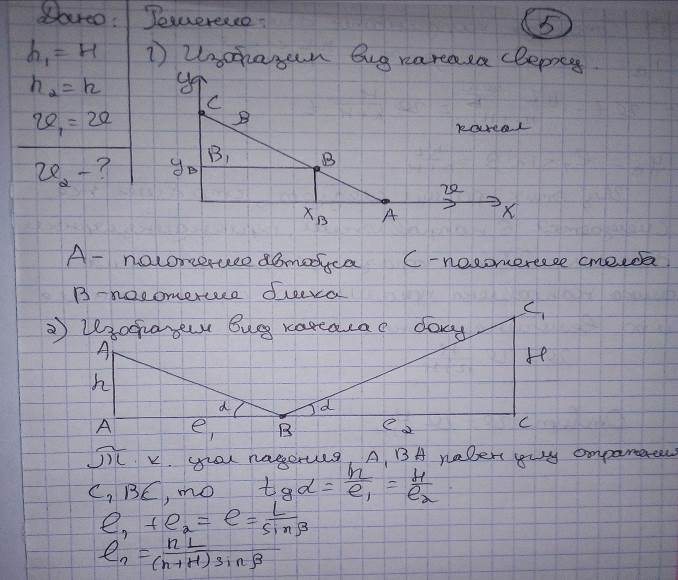 Дано: Решение: 5
h₁ = H 1) Изобразим вид канала сверху.
h₂ = h
υ₁ = υ
υ₂ - ?
y
C
β
канал
y_B B₁ B
υ
x_B A X
A - положение автобуса C - положение столба.
B - положение блика
2) Изобразим вид канала с боку.
A₁ C₁
h α α H
A l₁ B l₂ C
Т. к. угол падения A₁BA равен углу отражения
C₁BC, то tgα = h/l₁ = H/l₂
l₁ + l₂ = l = L/sinβ
l₁ = hL/(h+H)sinβ